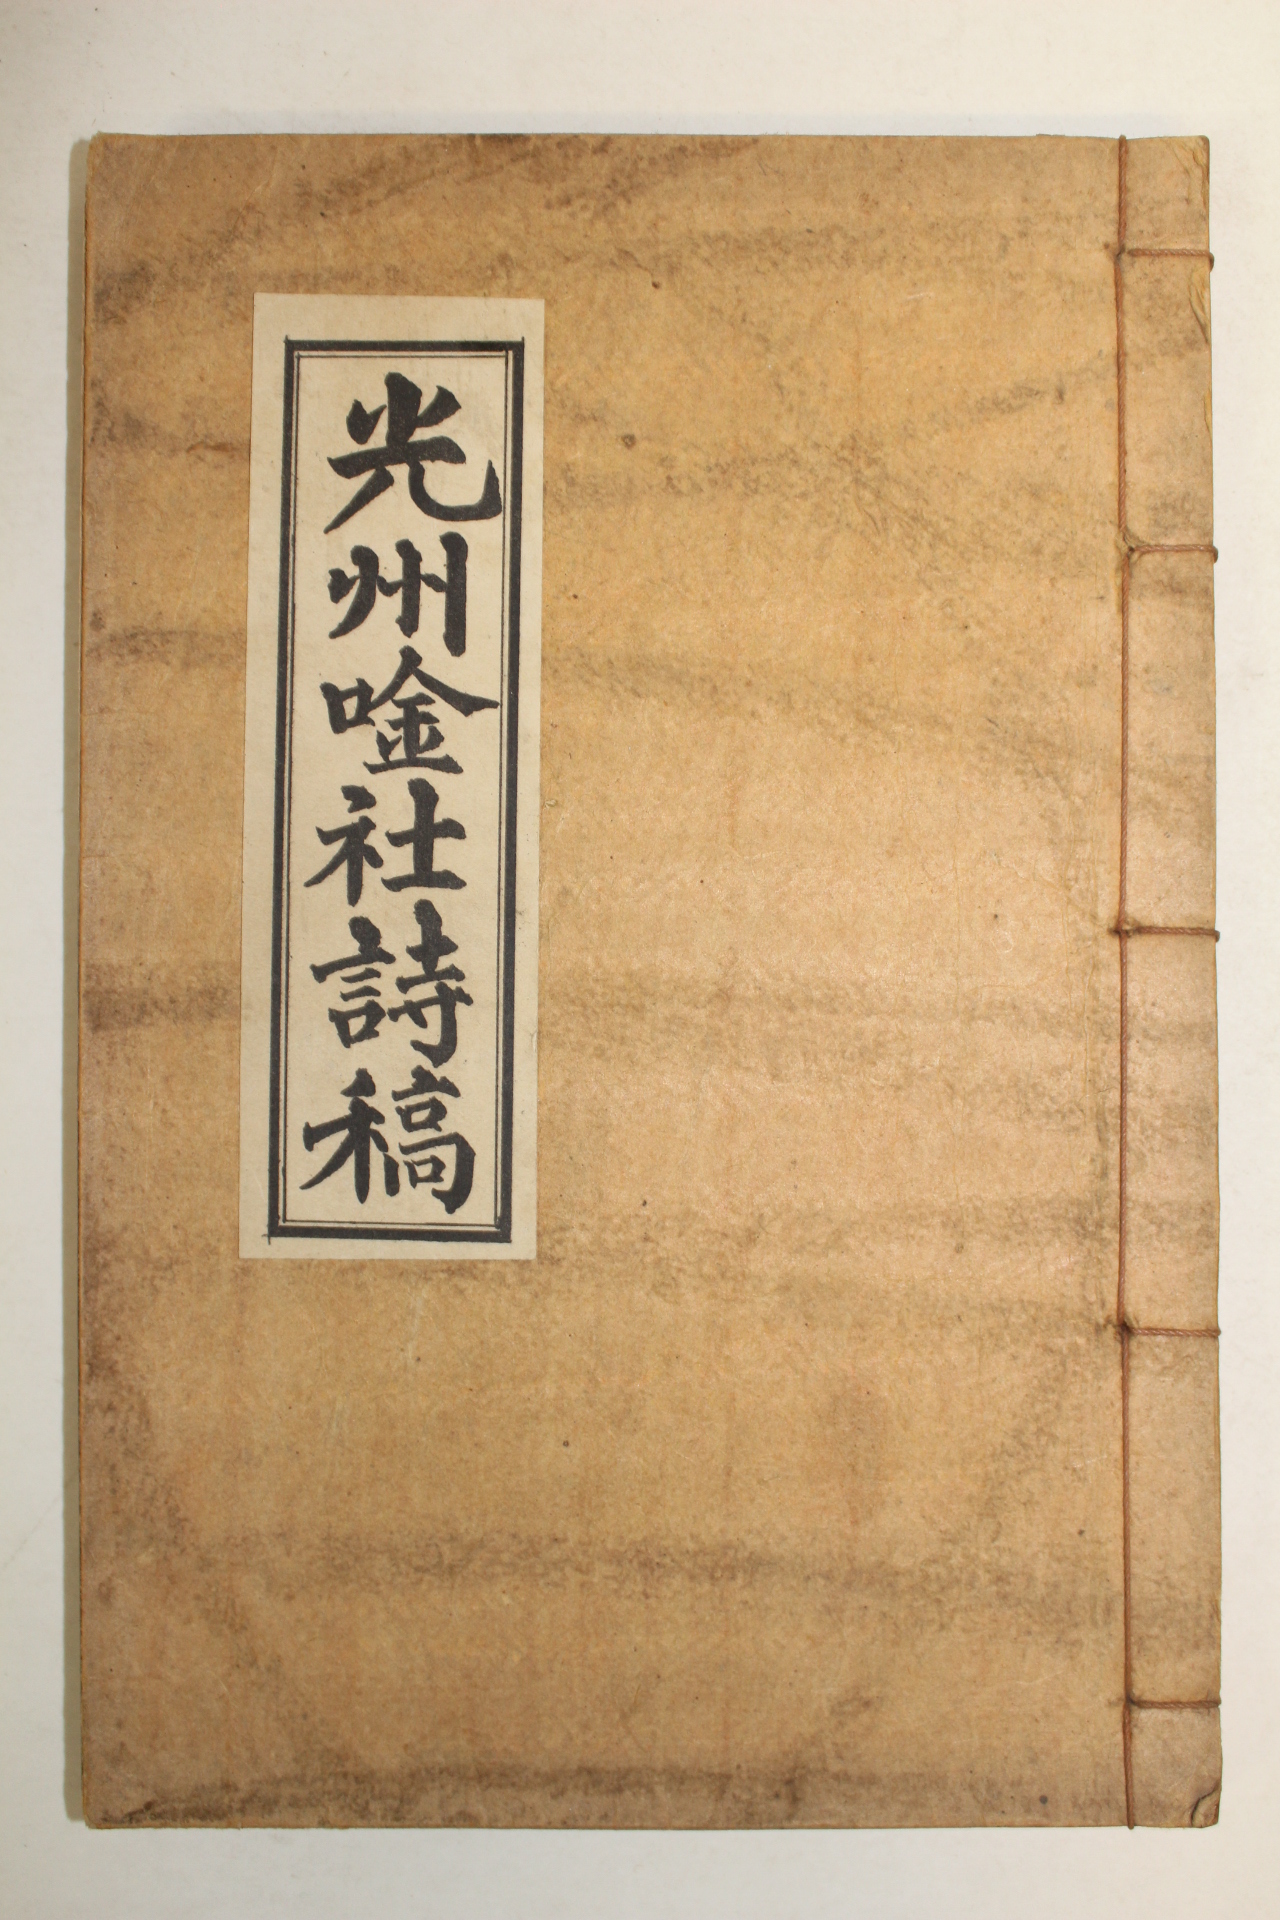 光州唫社詩稿